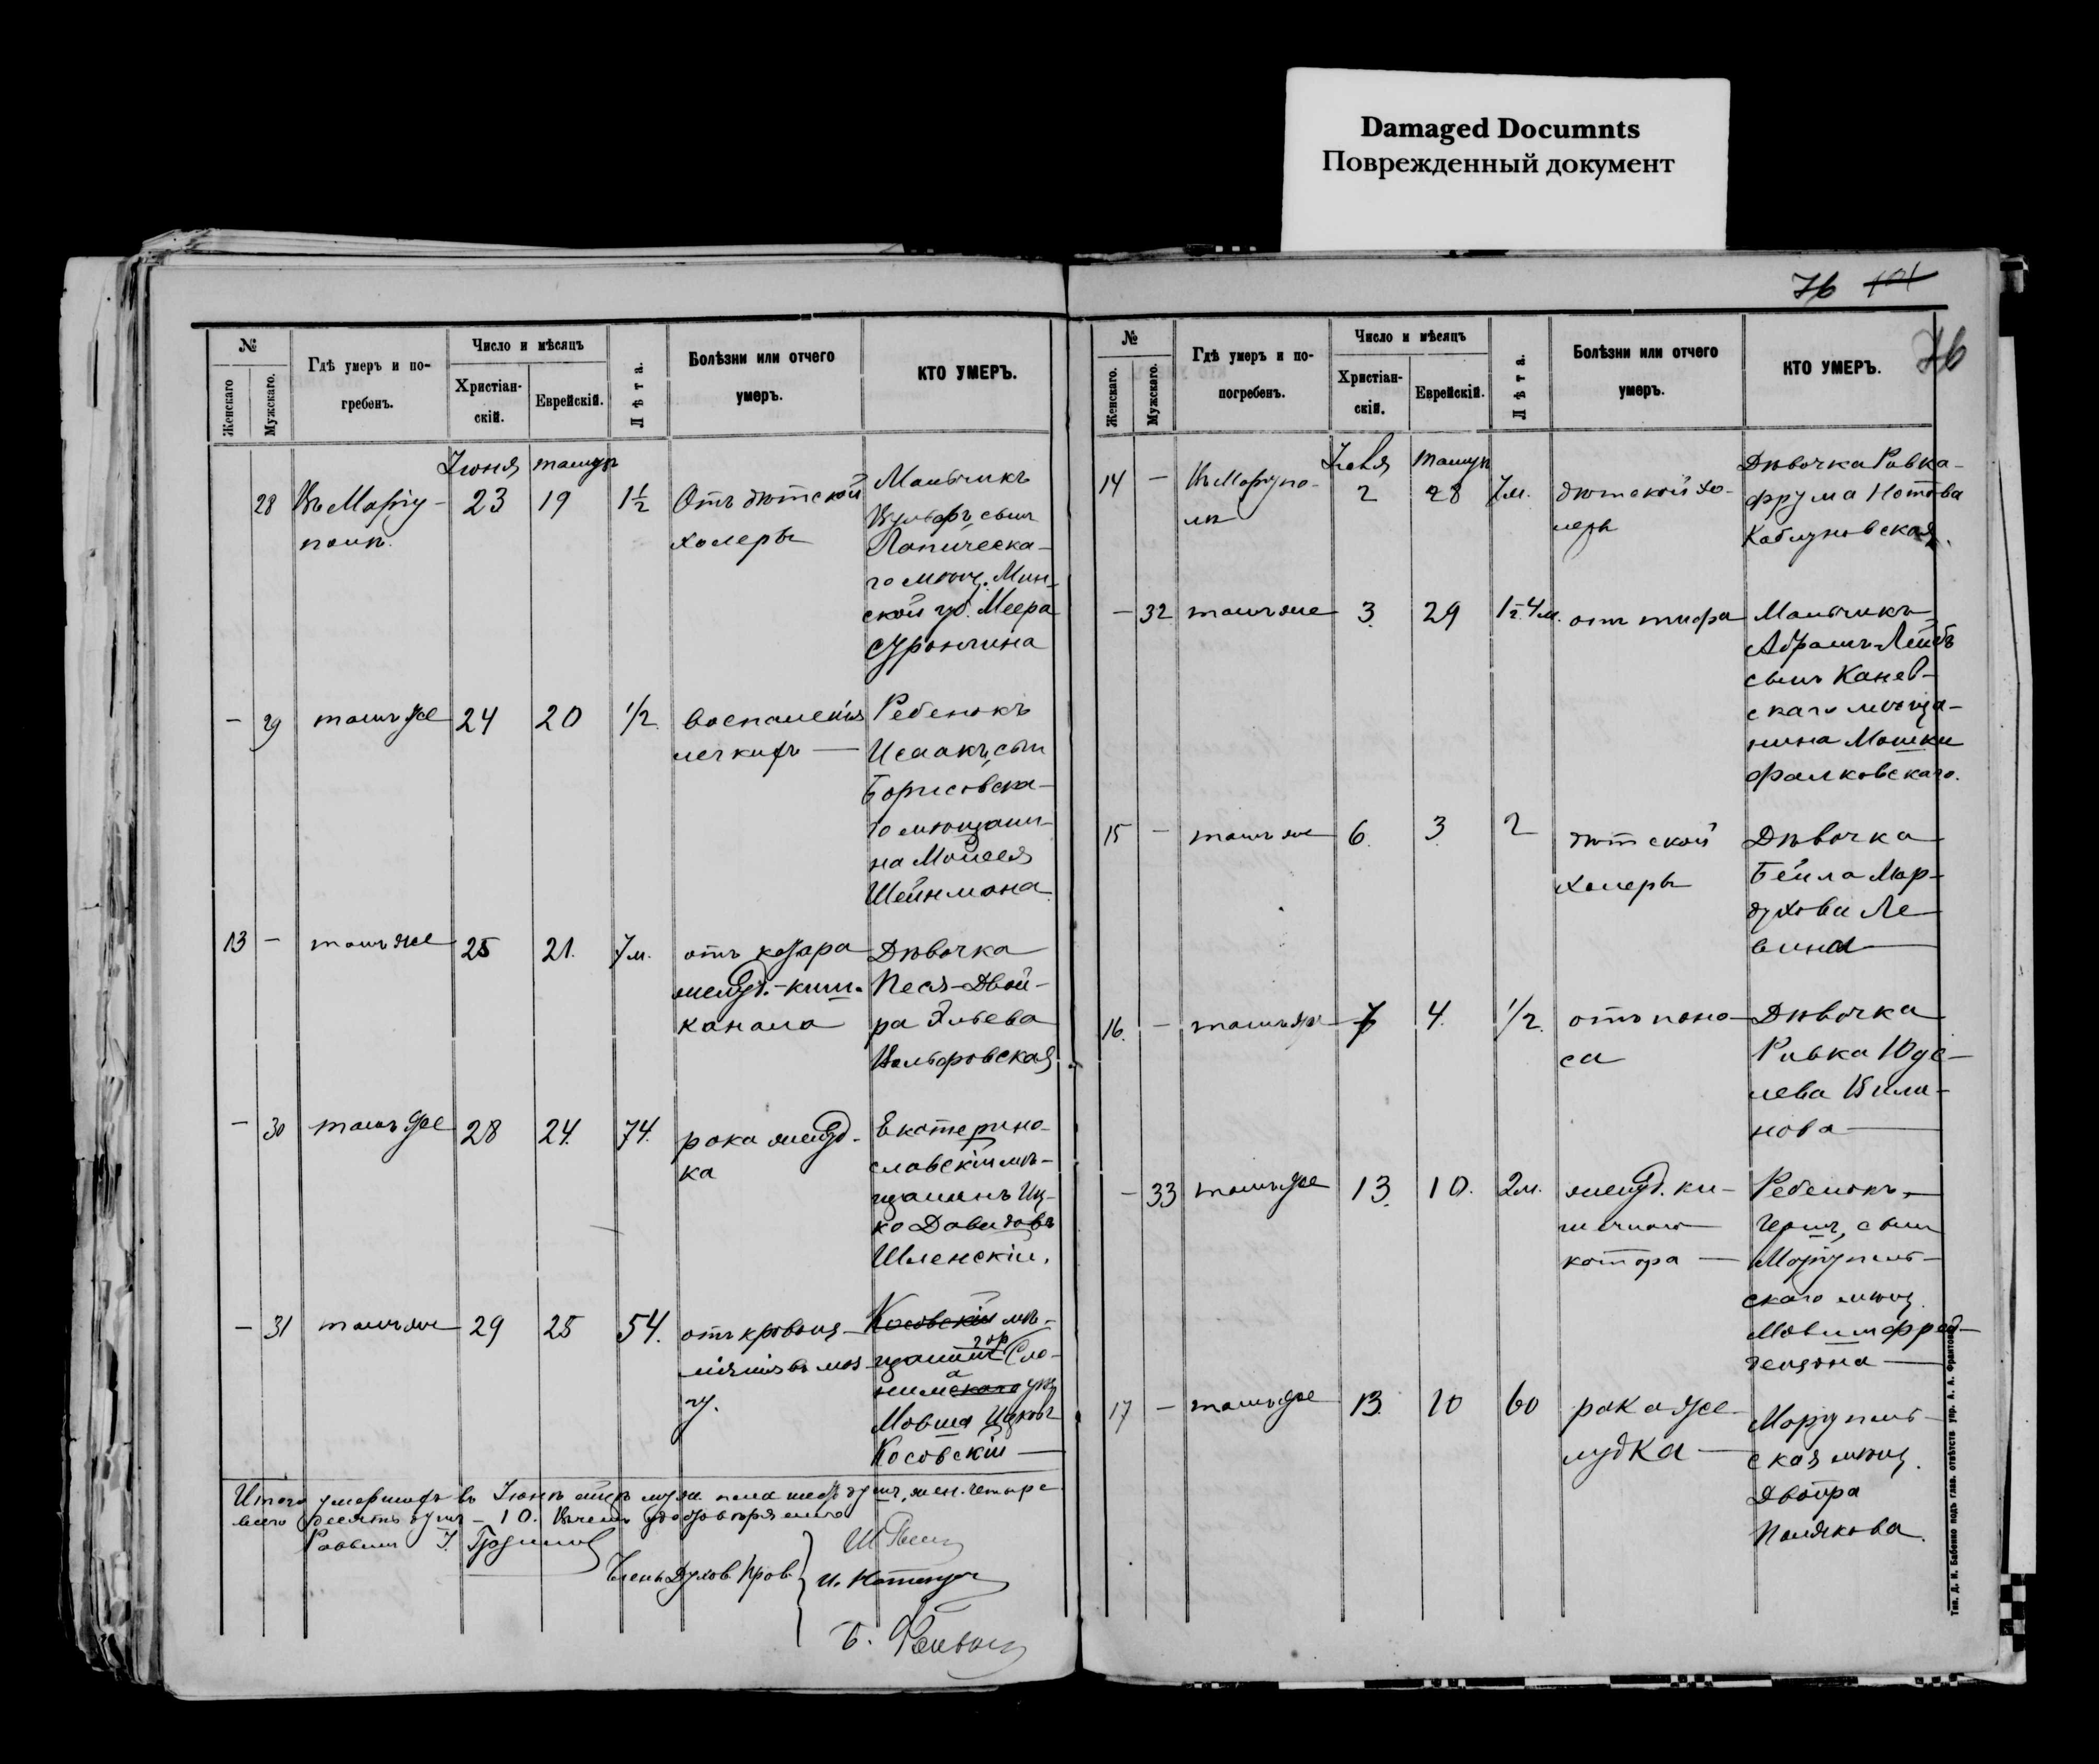 Damaged Documnts
Поврежденный документ
76 101
76
№
Женскаго
Мужскаго.
Гдѣ умеръ и по-
гребенъ.
Число и мѣсяцъ
Христіан-
скій.
Еврейскій.
Лѣта.
Болѣзни или отчего
умеръ.
КТО УМЕРЪ.
Іюня тамуз
28 Въ Маріу-
полѣ.
23 19 1½
Отъ дѣтской
холеры
Мальчикъ
Вульфъ, сынъ
Лапическа-
го мѣщ. Мин-
ской губ. Меера
– 29 тамъ же 24 20 1/2
воспаленія
легкихъ —
Ребенокъ
Исаакъ, сынъ
Борисовска-
го мѣщани-
на Моисея
Шейнмана
13 – тамъ же 25 21. 7 м.
отъ катара
желуд.-киш.
канала
Дѣвочка
Песя-Двой-
ра Эльева
Вольфовская
– 30 тамъ же 28 24. 74.
рака желуд-
ка
Екатерино-
славскій мѣ-
щанинъ Иц-
ко Давидовъ
Шленскій.
– 31 тамъ же 29 25 54.
отъ кровоиз-
ліянія въ моз-
гу.
Косовскій мѣ-
щанинъ гор. Сло-
нима
Мовша Ицковъ
Косовскій —
Итого умершихъ въ Іюнѣ муж. пола шесть душъ, жен. четыре
всего десять душъ – 10. Въ чемъ удостовѣряемъ
Раввинъ
Члены Духов. Прав.
№
Женскаго.
Мужскаго.
Гдѣ умеръ и по-
погребенъ.
Число и мѣсяцъ
Христіан-
скій.
Еврейскій.
Лѣта.
Болѣзни или отчего
умеръ.
КТО УМЕРЪ.
Іюля тамуз
14 – Въ Маріупо-
лѣ
2 28 7 м.
дѣтской хо-
леры
Дѣвочка Ривка-
Фрума Нотова
Каблуновская.
– 32 тамъ же 3. 29
отъ тифа
Мальчикъ
Абрамъ-Лейбъ
сынъ Канев-
скаго мѣща-
нина Мошки
Фалковскаго.
15 – тамъ же 6. 3. 2
дѣтской
холеры
Дѣвочка
Бейла Мор-
духова Ле-
вина
16. – тамъ же 7 4. 1/2.
отъ поно-
са
Дѣвочка
Ривка Юде-
лева Вили-
нова
– 33 тамъ же 13. 10. 2 м.
желуд. ки-
шечнаго
катара —
Ребенокъ
Герцъ, сынъ
Маріуполь-
скаго мѣщ.
17 – тамъ же 13. 10 60
рака же-
лудка —
Маріуполь-
ская мѣщ.
Двойра
Полякова.
Тип. Д. И. Бабенко подъ глав. отвѣтств. упр. А. А. Франтова